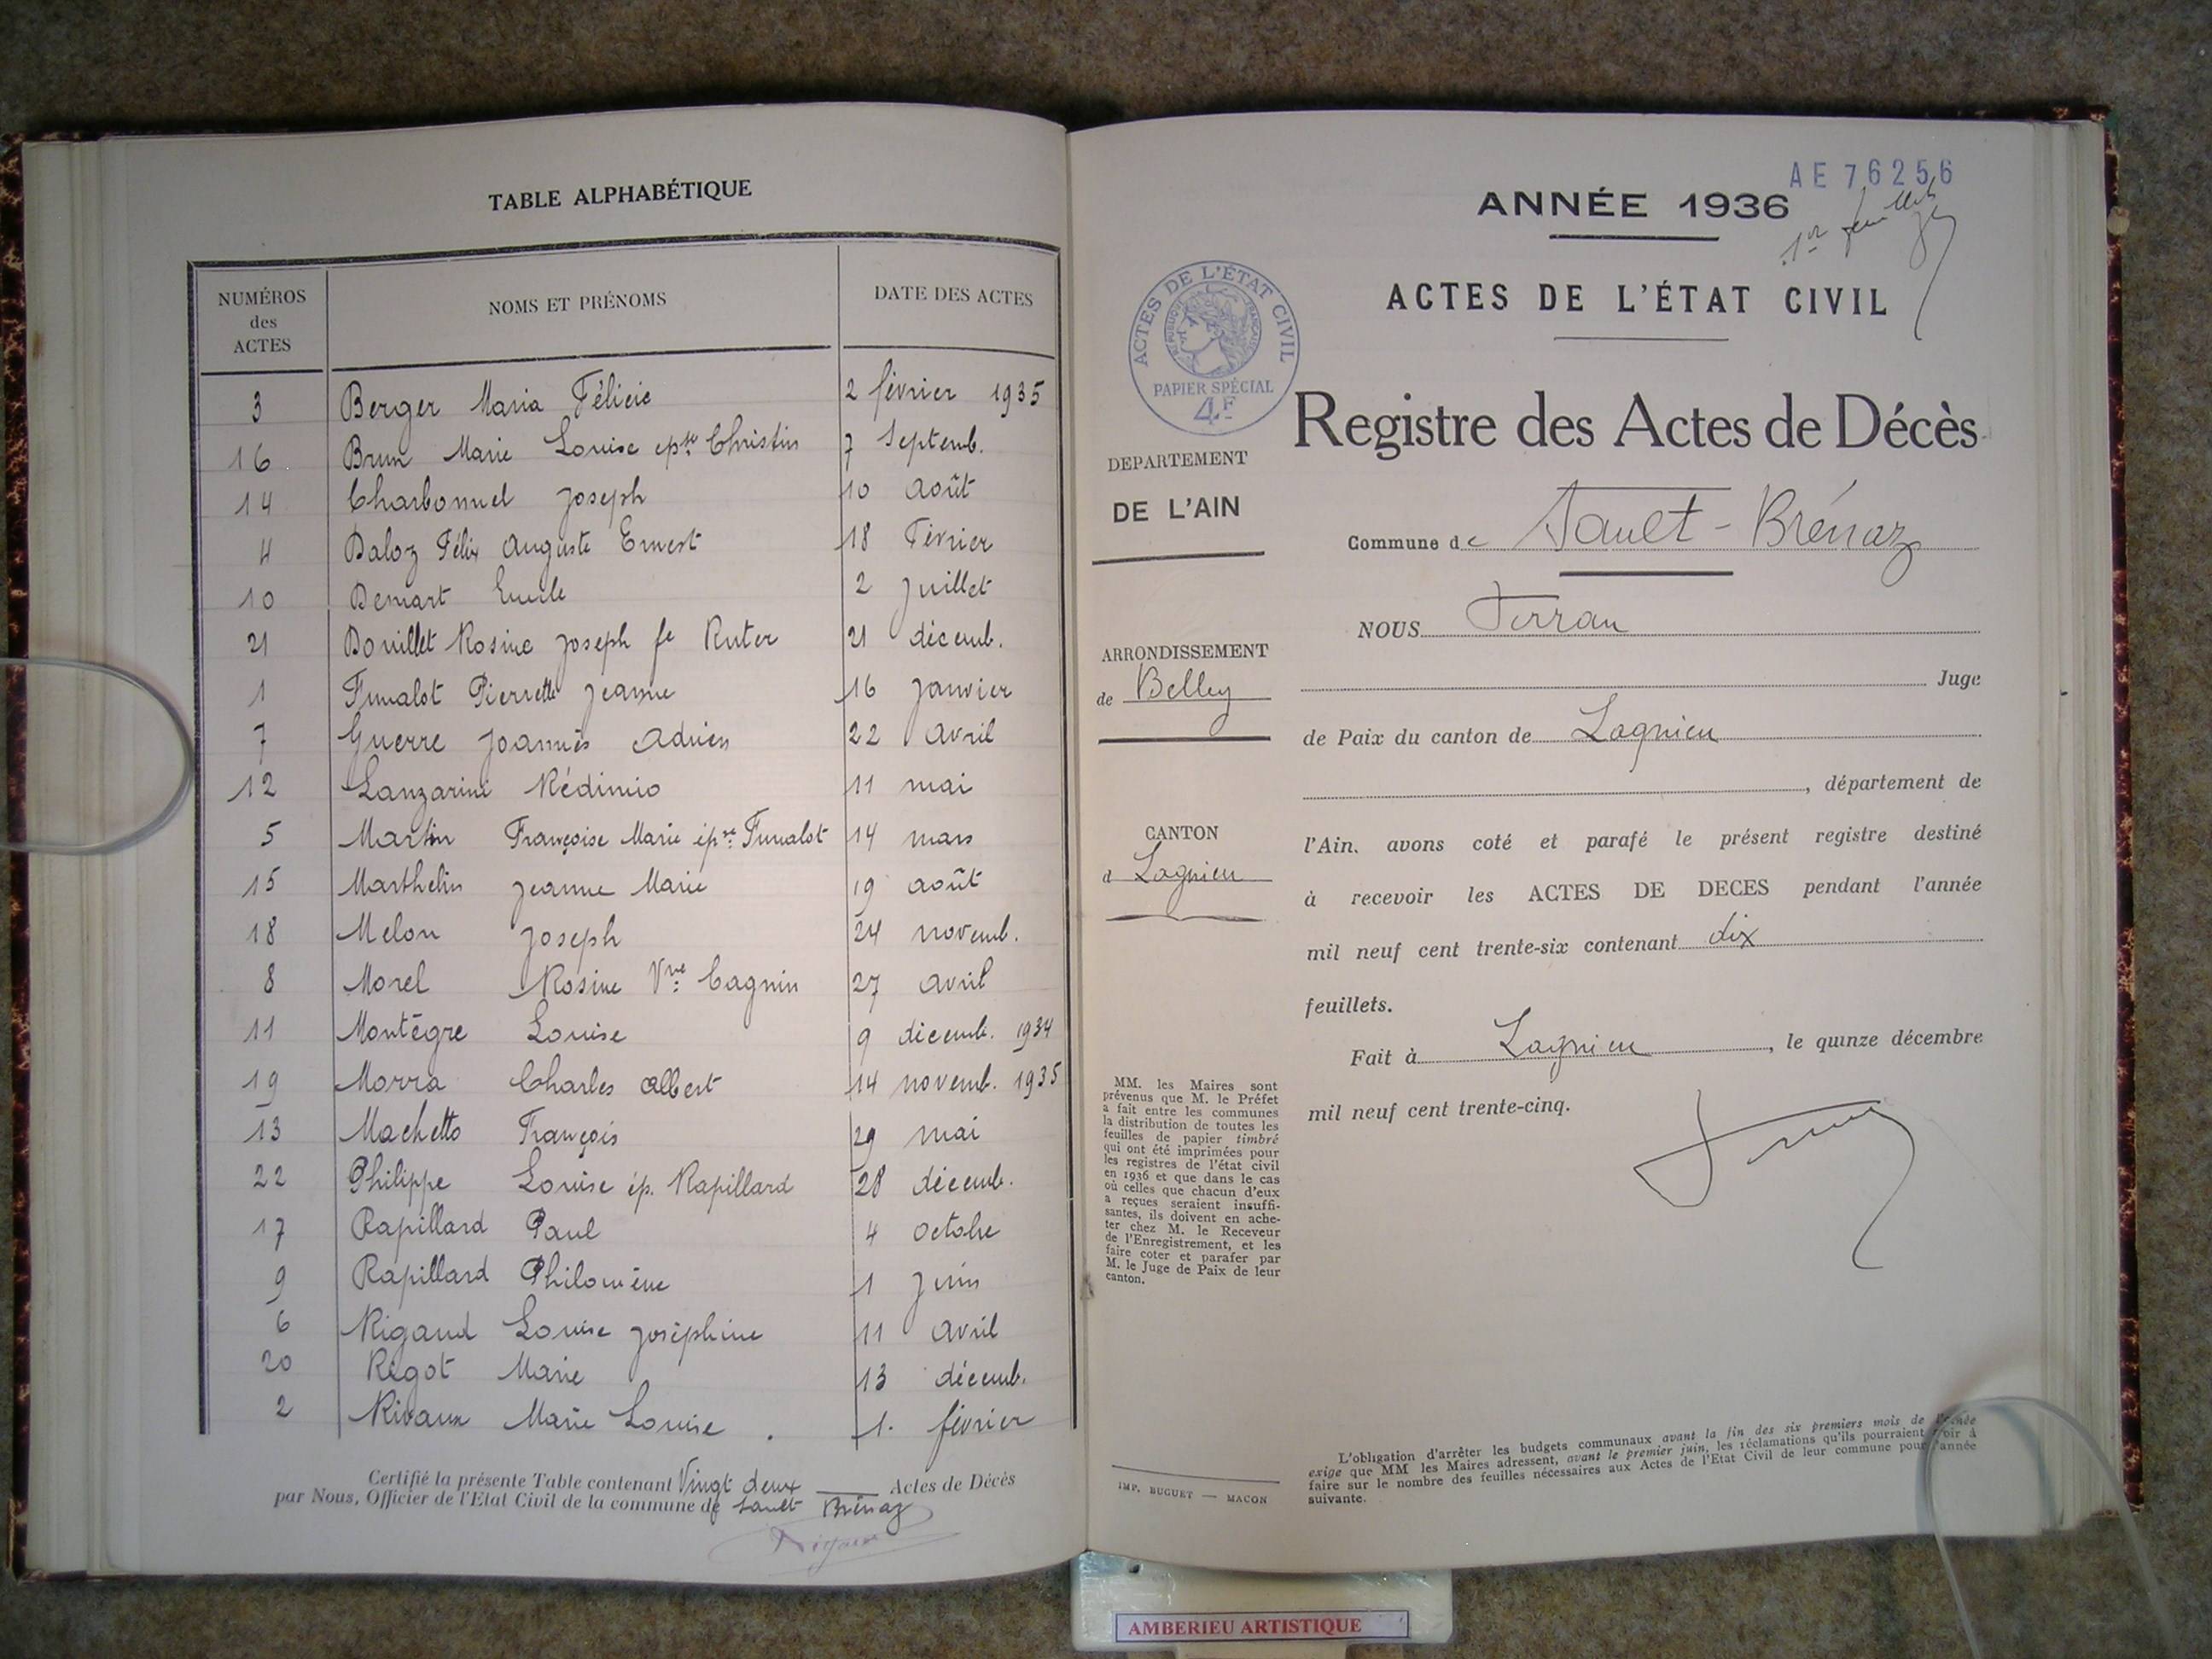 TABLE ALPHABÉTIQUE
NUMÉROS des ACTES NOMS ET PRÉNOMS DATE DES ACTES
3 Berger Maria Félicie 2 février 1935
16 Brun Marie Louise epse Christin 7 Septemb.
14 Charbonnel Joseph 10 août
4 Daloz Félix Auguste Ernest 18 Février
10 Demart Emile 2 Juillet
21 Douillet Rosine Joseph fe Ruter 21 décemb.
1 Funalot Pierrette Jeanne 16 Janvier
7 Guerre Joannès Adrien 22 Avril
12 Lanzarini Rédimio 11 mai
5 Martin Françoise Marie épse Funalot 14 mars
15 Marthelin Jeanne Marie 19 août
18 Melon Joseph 24 novemb.
8 Morel Rosine Vve Cagnin 27 avril
11 Montègre Louise 9 décemb. 1934
19 Morra Charles Albert 14 novemb. 1935
13 Machetto François 29 mai
22 Philippe Louise ép. Rapillard 28 décemb.
17 Rapillard Paul 4 octobre
9 Rapillard Philomène 1 Juin
6 Rigaud Louise Joséphine 11 avril
20 Rigot Marie 13 décemb.
2 Rivaux Marie Louise . 1. février
Certifié la présente Table contenant Vingt deux Actes de Décès
par Nous, Officier de l'Etat Civil de la commune de Sault Brénaz
AE 76256
ANNÉE 1936
1er feuillet
ACTES DE L'ÉTAT CIVIL
ACTES DE L'ÉTAT CIVIL
RÉPUBLIQUE FRANÇAISE
PAPIER SPÉCIAL
4F
Registre des Actes de Décès
DEPARTEMENT
DE L'AIN
Commune de Sault-Brénaz
NOUS Ferran
ARRONDISSEMENT
de Belley
Juge
de Paix du canton de Lagnieu
, département de
CANTON
d Lagnieu
l'Ain, avons coté et parafé le présent registre destiné
à recevoir les ACTES DE DECES pendant l'année
mil neuf cent trente-six contenant dix
feuillets.
Fait à Lagnieu, le quinze décembre
mil neuf cent trente-cinq.
MM. les Maires sont
prévenus que M. le Préfet
a fait entre les communes
la distribution de toutes les
feuilles de papier timbré
qui ont été imprimées pour
les registres de l'état civil
en 1936 et que dans le cas
où celles que chacun d'eux
a reçues seraient insuffi-
santes, ils doivent en ache-
ter chez M. le Receveur
de l'Enregistrement, et les
faire coter et parafer par
M. le Juge de Paix de leur
canton.
IMP. BUGUET — MACON
L'obligation d'arrêter les budgets communaux avant la fin des six premiers mois de l'année
exige que MM les Maires adressent, avant le premier juin, les réclamations qu'ils pourraient avoir à
faire sur le nombre des feuilles nécessaires aux Actes de l'Etat Civil de leur commune pour l'année
suivante.
AMBERIEU ARTISTIQUE